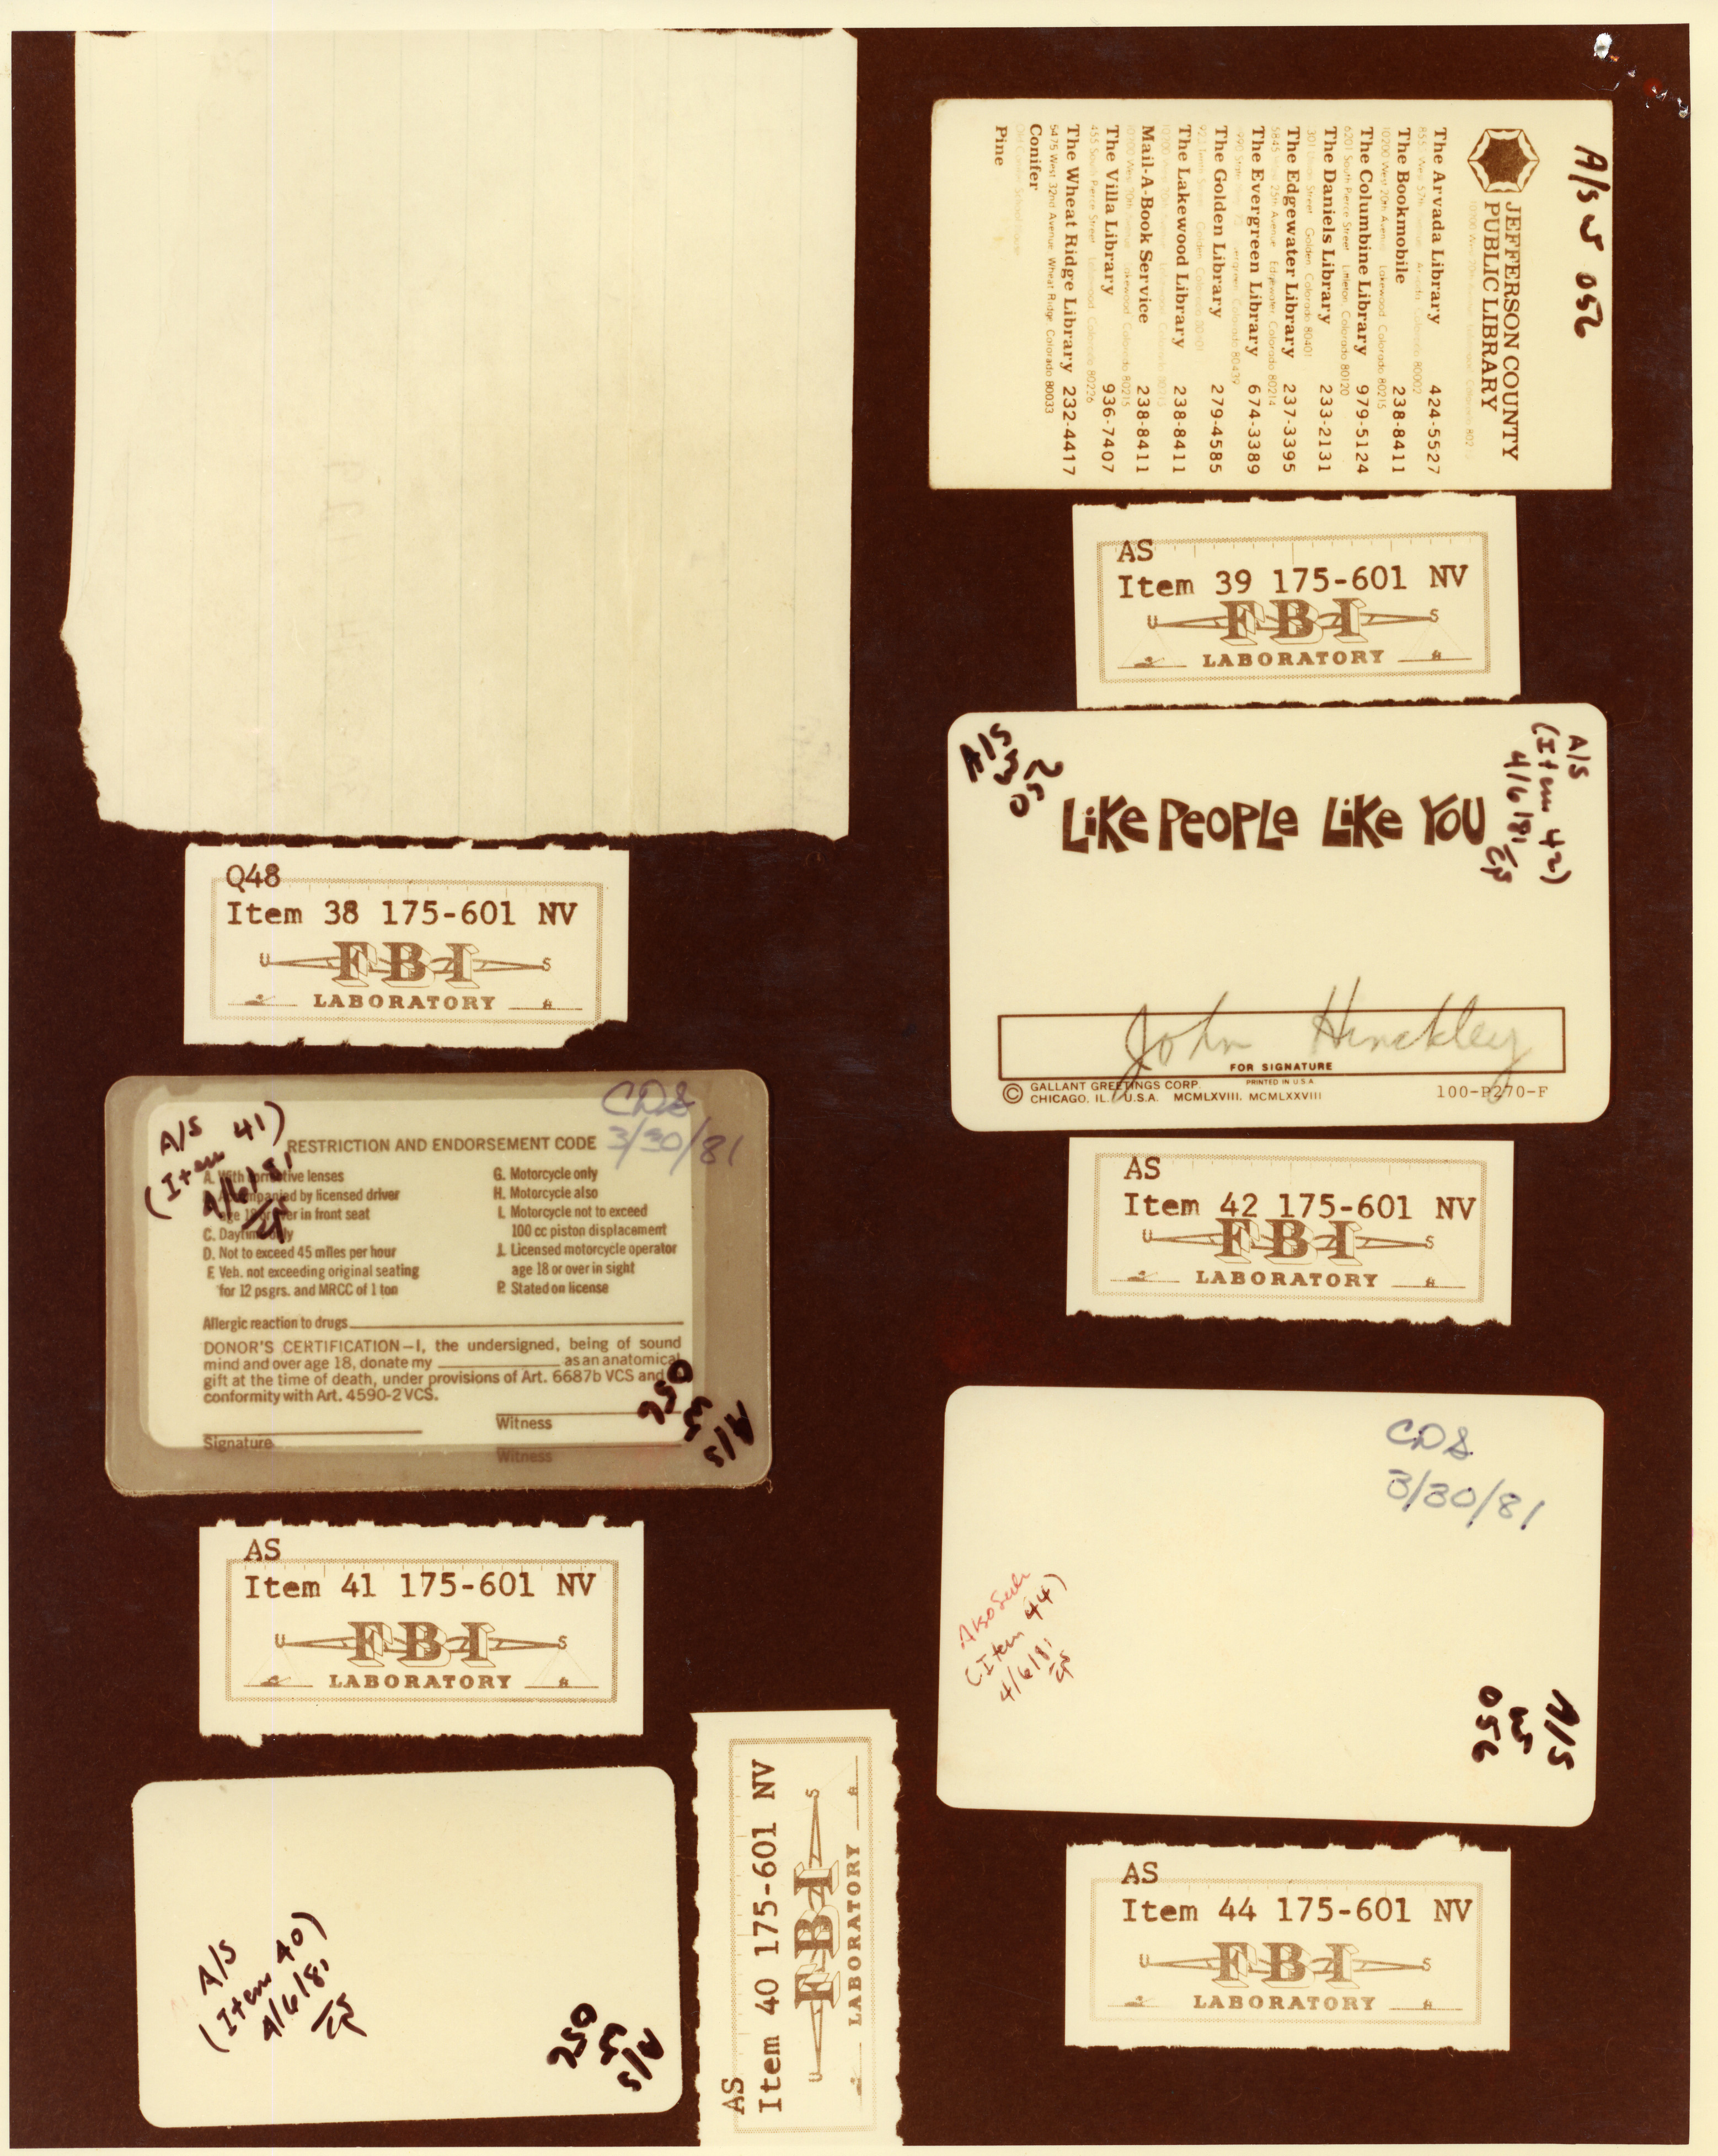 Q48
Item 38 175-601 NV
U FBI S
LABORATORY
A/S 052
JEFFERSON COUNTY
PUBLIC LIBRARY
The Arvada Library 424-5527
The Bookmobile 238-8411
10200 West 20th Avenue Lakewood Colorado 80215
The Columbine Library 979-5124
6201 South Pierce Street Littleton, Colorado 80120
The Daniels Library 233-2131
Street Golden Colorado 80401
The Edgewater Library 237-3395
5845 25th Avenue Edgewater Colorado 80214
The Evergreen Library 674-3389
Colorado 80439
The Golden Library 279-4585
The Lakewood Library 238-8411
Mail-A-Book Service 238-8411
Lakewood Colorado 80215
The Villa Library 936-7407
455 South Pierce Street Lakewood Colorado 80226
The Wheat Ridge Library 232-4417
5475 West 32nd Avenue Wheat Ridge Colorado 80033
Conifer
Pine
AS
Item 39 175-601 NV
U FBI S
LABORATORY
A/S
052
A/S
(Item 42)
4/6/81
LiKe PeOPLe LiKe YOU
John Hinckley
FOR SIGNATURE
© GALLANT GREETINGS CORP. PRINTED IN U.S.A
CHICAGO. IL. U.S.A. MCMLXVIII. MCMLXXVIII 100-P270-F
AS
Item 42 175-601 NV
U FBI S
LABORATORY
CDS
3/30/81
A/S
(Item 41)
4/6/81
RESTRICTION AND ENDORSEMENT CODE
A. With corrective lenses
Accompanied by licensed driver
age 18 or over in front seat
C. Daytime only
D. Not to exceed 45 miles per hour
F. Veh. not exceeding original seating
for 12 psgrs. and MRCC of 1 ton
G. Motorcycle only
H. Motorcycle also
I. Motorcycle not to exceed
100 cc piston displacement
J. Licensed motorcycle operator
age 18 or over in sight
P. Stated on license
Allergic reaction to drugs
DONOR'S CERTIFICATION—I, the undersigned, being of sound
mind and over age 18, donate my as an anatomical
gift at the time of death, under provisions of Art. 6687b VCS and
conformity with Art. 4590-2 VCS.
Witness
Signature
Witness
052
A/S
AS
Item 41 175-601 NV
U FBI S
LABORATORY
CDS
3/30/81
(Item 44)
4/6/81
A/S
056
AS
Item 44 175-601 NV
U FBI S
LABORATORY
A/S
(Item 40)
4/6/81
052
A/S
AS
Item 40 175-601 NV
U FBI S
LABORATORY